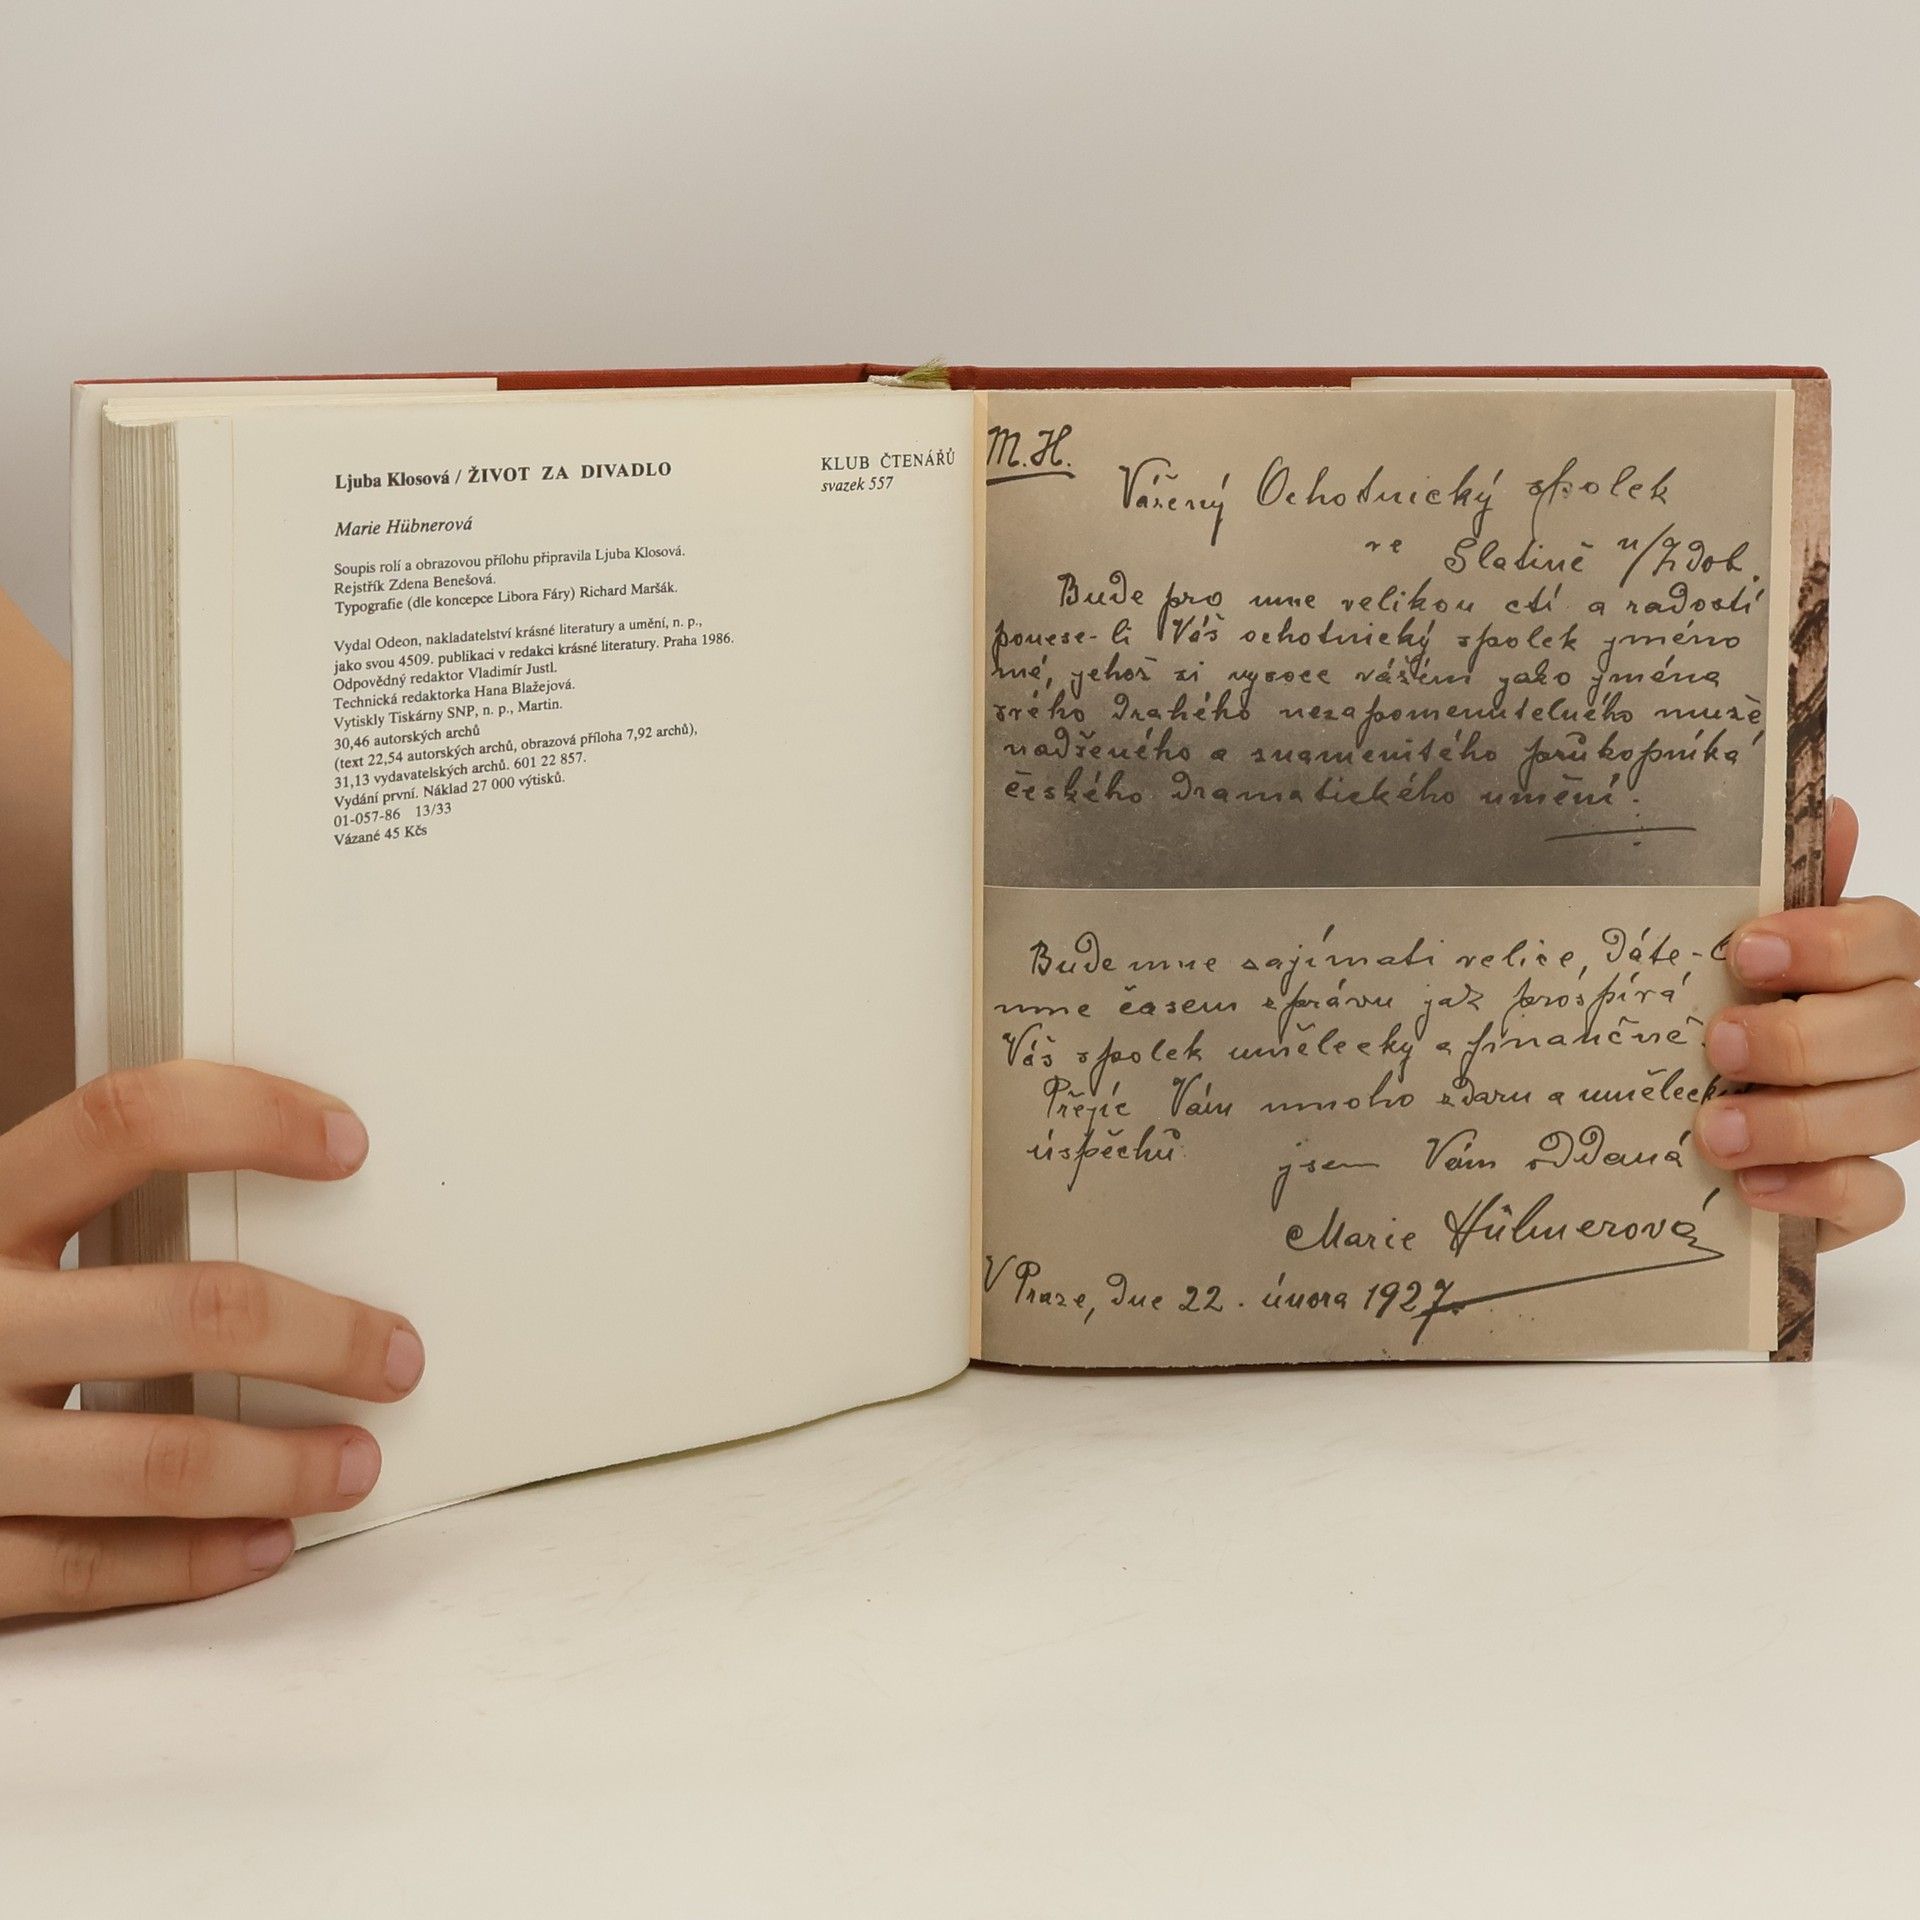 Ljuba Klosová / ŽIVOT ZA DIVADLO
KLUB ČTENÁŘŮ
svazek 557
Marie Hübnerová
Soupis rolí a obrazovou přílohu připravila Ljuba Klosová.
Rejstřík Zdena Benešová.
Typografie (dle koncepce Libora Fáry) Richard Maršák.
Vydal Odeon, nakladatelství krásné literatury a umění, n. p.,
jako svou 4509. publikaci v redakci krásné literatury. Praha 1986.
Odpovědný redaktor Vladimír Justl.
Technická redaktorka Hana Blažejová.
Vytiskly Tiskárny SNP, n. p., Martin.
30,46 autorských archů
(text 22,54 autorských archů, obrazová příloha 7,92 archů),
31,13 vydavatelských archů. 601 22 857.
Vydání první. Náklad 27 000 výtisků.
01-057-86 13/33
Vázané 45 Kčs
M. H.
Vážený Ochotnický spolek
ve Slatině n/Zdob.
Bude pro mne velikou ctí a radostí
ponese-li Váš ochotnický spolek jméno
mé, jehož si vysoce vážím jako jména
svého drahého nezapomenutelného muže
nadšeného a znamenitého průkopníka
českého dramatického umění.
Bude mne zajímati velice, dáte-
mne časem zprávu jak prospívá
Váš spolek umělecky a finančně.
Přejíc Vám mnoho zdaru a umělecký
úspěchů jsem Vám oddaná
Marie Hübnerová
V Praze, dne 22. února 1927.